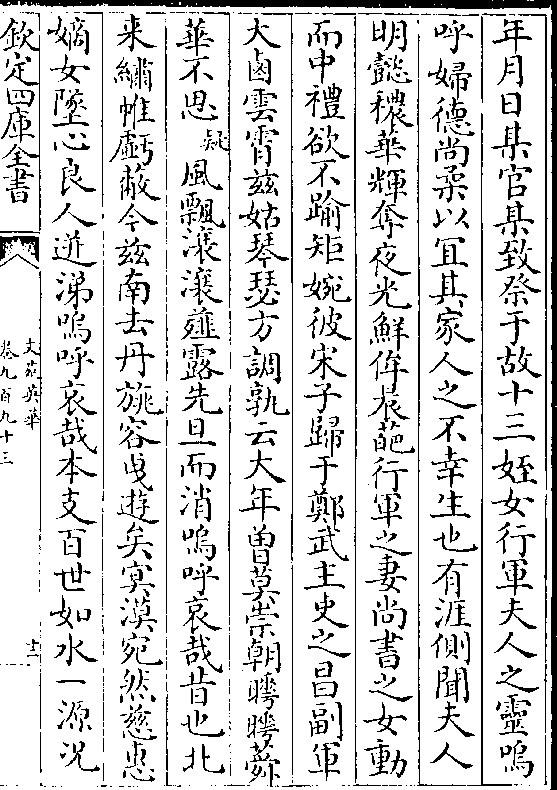 年月日某官某致祭于故十三姪女行軍夫人之靈嗚
呼婦德尚柔以冝其家人之不幸生也有涯側聞夫人
明懿穠華輝奪夜光鮮侔晨葩行軍之妻尚書之女動
而中禮欲不踰矩婉彼宋子歸于鄭武主史之昌副軍
大鹵雲霄兹姑琴瑟方調孰云大年曽莫崇朝㬋㬋蕣
華不思疑風飄滾滾薤露先旦而消嗚呼哀哉昔也北
来繡帷虧蔽今兹南去丹旐容曵遊矣㝠漠宛然慈惠
嫡女墜心良人迸涕嗚呼哀哉本支百世如水一源况
欽定四庫全書
文苑英華
卷九百九十三
十二